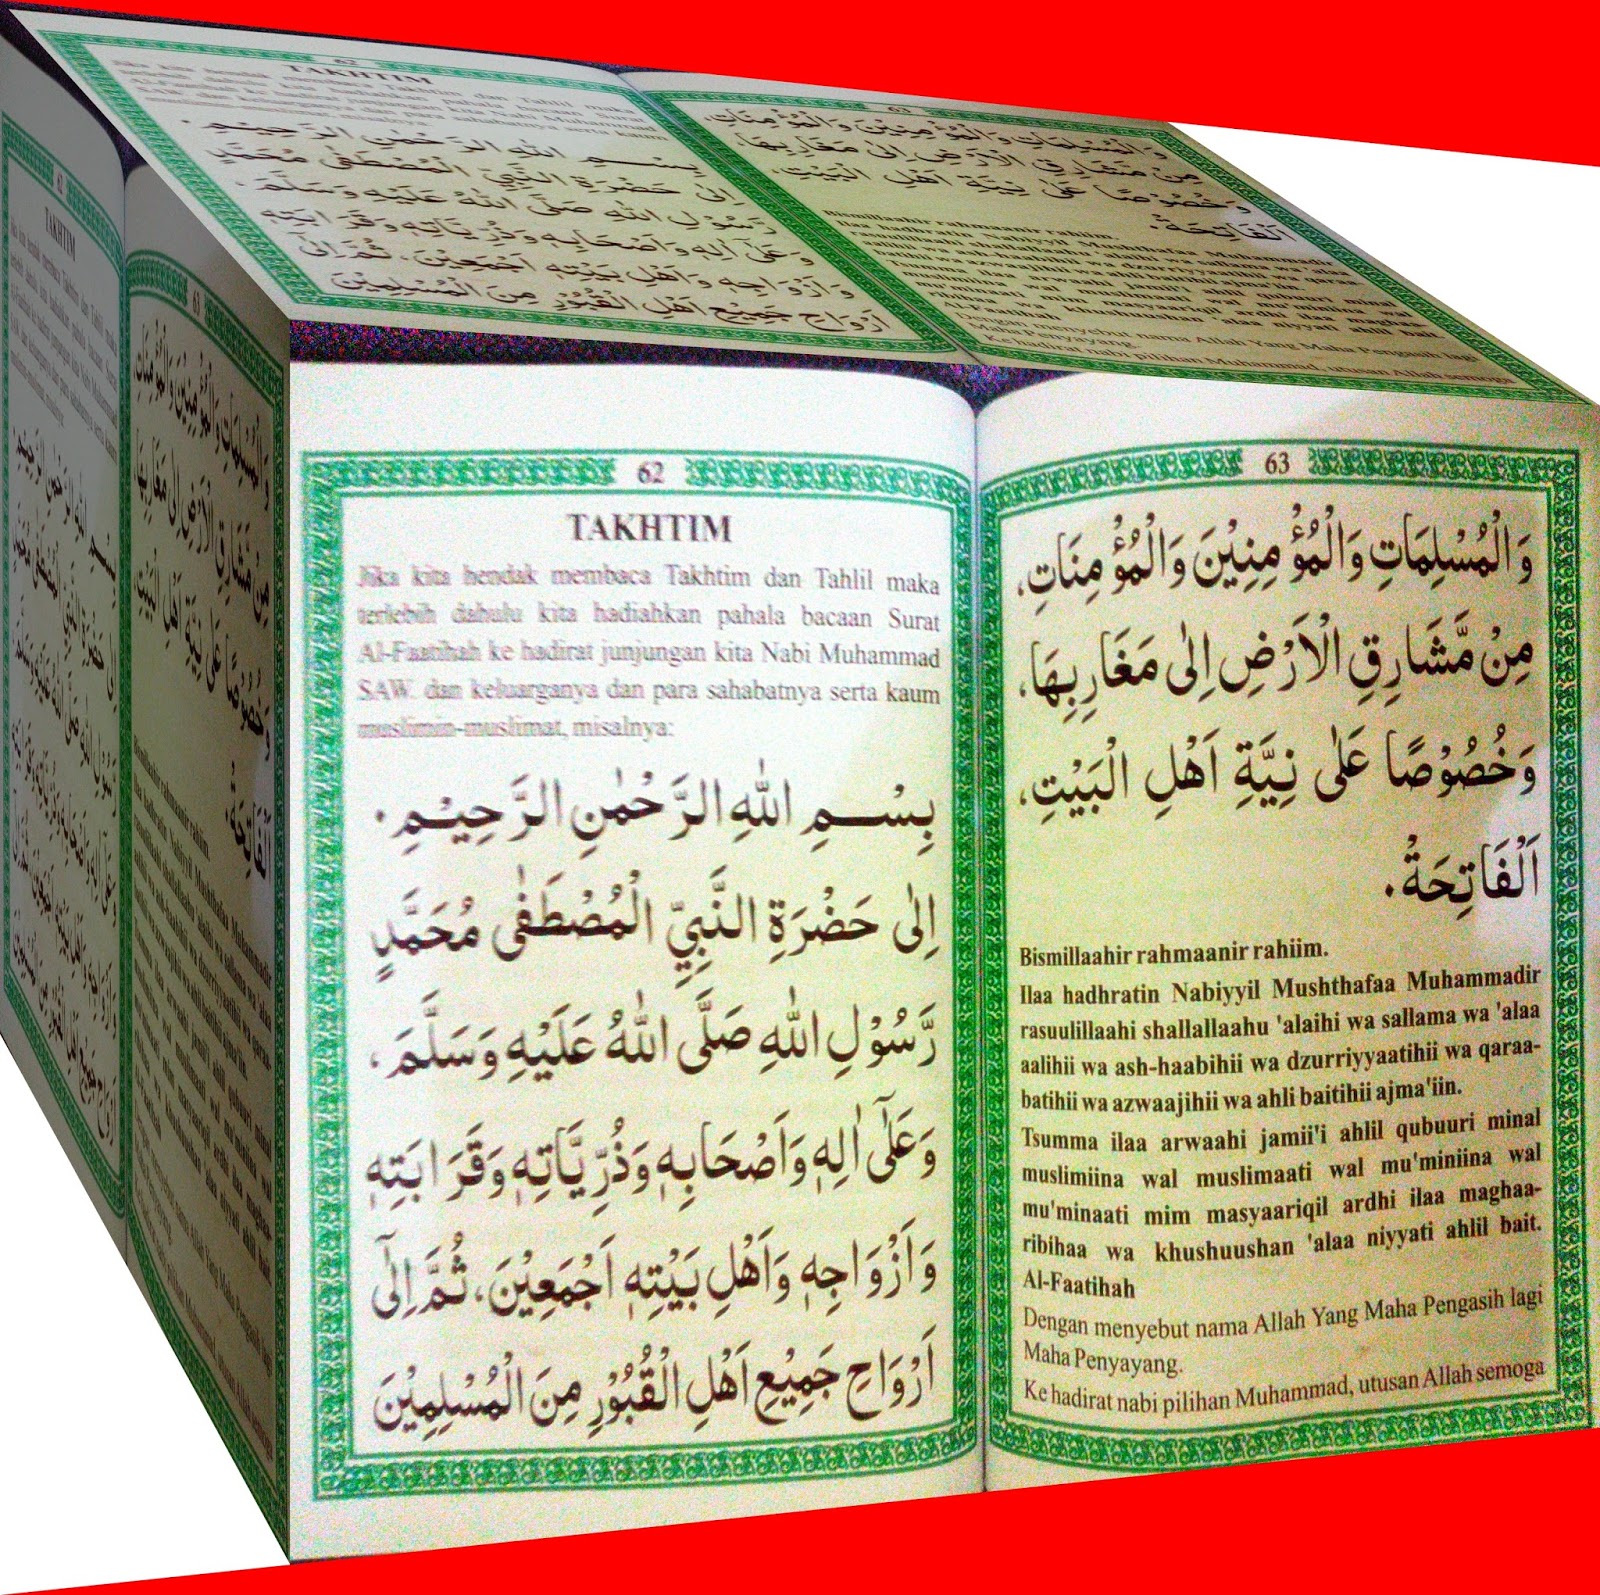 62
TAKHTIM
Jika kita hendak membaca Takhtim dan Tahlil maka
terlebih dahulu kita hadiahkan pahala bacaan Surat
Al-Faatihah ke hadirat junjungan kita Nabi Muhammad
SAW. dan keluarganya dan para sahabatnya serta kaum
muslimin-muslimat, misalnya:
بِسْــمِ اللّٰهِ الرَّحْمٰنِ الرَّحِيْمِ.
اِلٰى حَضْرَةِ النَّبِيِّ الْمُصْطَفٰى مُحَمَّدٍ
رَّسُوْلِ اللّٰهِ صَلَّى اللّٰهُ عَلَيْهِ وَسَلَّمَ،
وَعَلٰٓى اٰلِهٖ وَاَصْحَابِهٖ وَذُرِّيَّاتِهٖ وَقَرَابَتِهٖ
وَاَزْوَاجِهٖ وَاَهْلِ بَيْتِهٖ اَجْمَعِيْنَ، ثُمَّ اِلٰٓى
اَرْوَاحِ جَمِيْعِ اَهْلِ الْقُبُوْرِ مِنَ الْمُسْلِمِيْنَ
63
وَالْمُسْلِمَاتِ وَالْمُؤْمِنِيْنَ وَالْمُؤْمِنَاتِ،
مِنْ مَّشَارِقِ الْاَرْضِ اِلٰى مَغَارِبِهَا،
وَخُصُوْصًا عَلٰى نِيَّةِ اَهْلِ الْبَيْتِ،
اَلْفَاتِحَةُ.
Bismillaahir rahmaanir rahiim.
Ilaa hadhratin Nabiyyil Mushthafaa Muhammadir
rasuulillaahi shallallaahu 'alaihi wa sallama wa 'alaa
aalihii wa ash-haabihii wa dzurriyyaatihii wa qaraa-
batihii wa azwaajihii wa ahli baitihii ajma'iin.
Tsumma ilaa arwaahi jamii'i ahlil qubuuri minal
muslimiina wal muslimaati wal mu'miniina wal
mu'minaati mim masyaariqil ardhi ilaa maghaa-
ribihaa wa khushuushan 'alaa niyyati ahlil bait.
Al-Faatihah
Dengan menyebut nama Allah Yang Maha Pengasih lagi
Maha Penyayang.
Ke hadirat nabi pilihan Muhammad, utusan Allah semoga